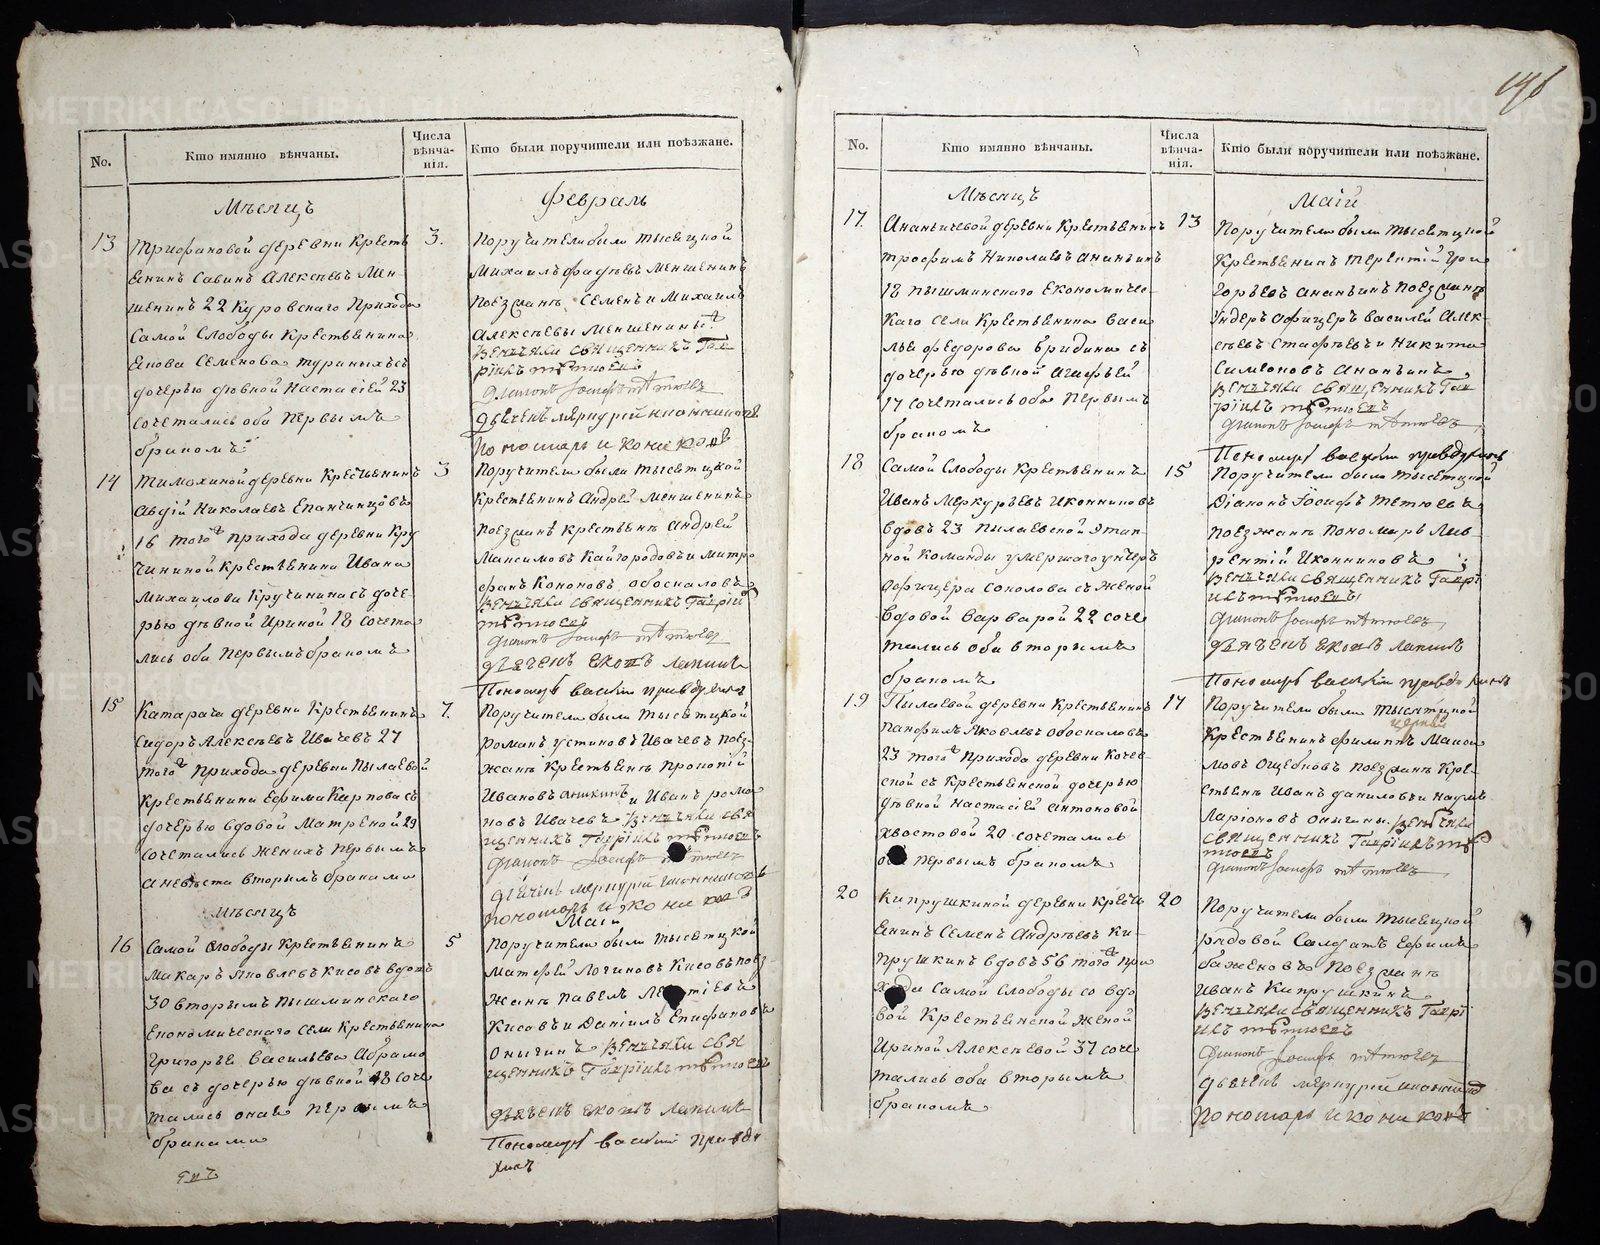 No.
Кто имянно вѣнчаны.
Числа
вѣнча-
нія.
Кто были поручители или поѣзжане.
Мѣсяцъ
Февраль
13
Трифановой деревни Кресть
янинъ Савинъ Алексѣевъ Мен
шенинъ 22 Куровскаго Прихода
Самой Слободы Крестьянина
Семенова
дочерью дѣвкой Настасіей 23
сочетались оба первымъ
бракомъ
3.
Поручители были тысяцкой
Михаилъ Фадѣевъ Меншенинъ
поезжанѣ Семенъ и Михаилъ
Алексѣевы Меншенины
Венчали священникъ Гав
ріилъ Тетюевъ
Диаконъ Іосифъ Тетюевъ
Дьячекъ Меркурій Иконниковъ
Пономарь Иконниковъ
14
Тимохиной деревни Крестьянинъ
Авдій Николаевъ Епанчинцовъ
16 того прихода деревни Кру
чининой Крестьянина Ивана
Михаилова Кручинина съ доче
рью дѣвкой Ириной 18 сочета
лись оба первымъ бракомъ
3
Поручители были тысяцкой
Крестьянинъ Андрей Меншенинъ
поезжанѣ крестьянѣ Андрей
Максимовъ Кайгородовъ и Митро
фанъ Кононовъ Обоскаловъ
Венчали священникъ Гавріилъ
Тетюевъ
Диаконъ Іосифъ Тетюевъ
Дьячекъ Лапинъ
Пономарь Василій
15
Катарача деревни Крестьянинъ
Сидоръ Алексѣевъ Ивачевъ 27
того прихода деревни Пылаевой
Крестьянина Ефима Карпова съ
дочерью вдовой Матреной 29
сочетались женихъ первымъ
а невѣста вторымъ браками
7.
Поручители были тысяцкой
Романъ Устиновъ Ивачевъ поез-
жанѣ крестьянѣ Прокопій
Ивановъ Аникинъ и Иванъ Рома
новъ Ивачевъ Венчали свя
щенникъ Гавріилъ Тетюевъ
Диаконъ Іосифъ Тетюевъ
Дьячекъ Меркурій Иконниковъ
Пономарь Иконниковъ
Мѣсяцъ
Маій
16
Самой Слободы Крестьянинъ
Макаръ Яковлевъ Кисовъ вдовъ
30 вторымъ Пышминскаго
Економическаго села Крестьянина
Григорья Васильева Абрамо
ва съ дочерью дѣвкой 18 соче
тались онае первымъ
браками
5
Поручители были тысяцкой
Матфей Логиновъ Кисовъ поез-
жанѣ Павелъ
Кисовъ и Даніилъ Епифановъ
Оничинъ Венчали свя
щенникъ Гавріилъ Тетюевъ
Дьячекъ Лапинъ
Пономарь Василій Правдо
хинъ
No.
Кто имянно вѣнчаны.
Числа
вѣнча-
нія.
Кто были поручители или поѣзжане.
Мѣсяцъ
Маій
17.
Ананьичевой деревни Крестьянинъ
Трофимъ Николаевъ Ананьинъ
18 Пышминскаго Економиче-
каго села Крестьянина Васи
лья Федорова Бридина съ
дочерью дѣвкой Агафьей
17 сочетались оба первымъ
бракомъ
13
Поручители были тысяцкой
Крестьянинъ Терентій Гри
горьевъ Ананьинъ поезжанѣ
Ундеръ Офицеръ Василей Алек-
сѣевъ Стафѣевъ и Никита
Симеоновъ Ананьинъ
Венчали священникъ Гав
ріилъ Тетюевъ
Диаконъ Іосифъ Тетюевъ
Пономарь Василій Правдухинъ
18
Самой Слободы Крестьянинъ
Иванъ Меркурьевъ Иконниковъ
вдовъ 23 Пилаевской Этап
ной Команды умершаго ундеръ
Офицера Соколова съ женой
вдовой Варварой 22 соче
тались оба вторымъ
бракомъ
15
Поручители были тысяцкой
Діаконъ Іосифъ Тетюевъ
поезжанѣ Пономарь Лав
рентій Иконниковъ
Венчали священникъ Гаврі
илъ Тетюевъ
Диаконъ Іосифъ Тетюевъ
Дьячекъ Лапинъ
Пономарь Василій
19
Пылаевой деревни Крестьянинъ
Панфилъ Яковлевъ Обоскаловъ
23 того прихода деревни Коче-
ской съ Крестьянской дочерью
дѣвкой Настасіей Антоновой
Хвостовой 20 сочетались
первымъ бракомъ
17
Поручители были тысяцкой
Крестьянинъ Филиппъ Макси
мовъ Ощепковъ поезжанѣ Кре-
стьянѣ Иванъ Даниловъ и Наумъ
Ларіоновъ Оничины. Венчали
священникъ Гавріилъ Те
тюевъ
Диаконъ Іосифъ Тетюевъ
20
Кипрушкиной деревни Кресть
янинъ Семенъ Андрѣевъ Ки-
прушкинъ вдовъ 56 того при
хода Самой Слободы со вдо
вой Крестьянской женой
Ириной Алексѣевой 37 соче
тались оба вторымъ
бракомъ
20
Поручители были тысяцкой
рядовой Салдатъ Ефимъ
Баженовъ поезжанѣ
Иванъ Кипрушкинъ
Венчали священникъ Гаврі
илъ Тетюевъ
Диаконъ Іосифъ Тетюевъ
Дьячекъ Меркурій Иконников
Пономарь Иконниковъ